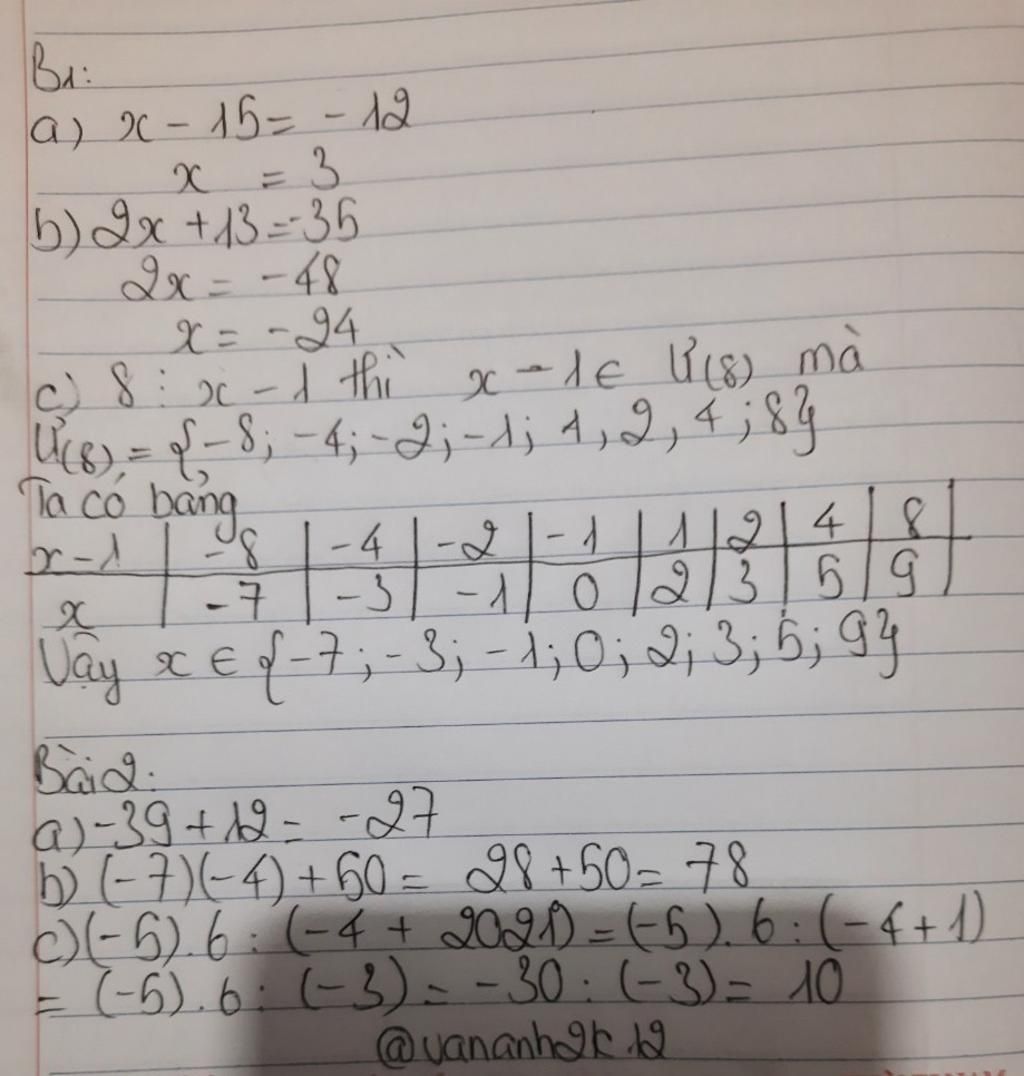 B1:
a) x - 15 = -12
x = 3
b) 2x + 13 = -35
2x = -48
x = -24
c) 8 ⋮ x - 1 thì x - 1 ∈ Ư(8) mà
Ư(8) = {-8; -4; -2; -1; 1, 2, 4; 8}
Ta có bảng
x - 1 | -8 | -4 | -2 | -1 | 1 | 2 | 4 | 8
x | -7 | -3 | -1 | 0 | 2 | 3 | 5 | 9
Vậy x ∈ {-7; -3; -1; 0; 2; 3; 5; 9}
Bài 2:
a) -39 + 12 = -27
b) (-7)(-4) + 50 = 28 + 50 = 78
c) (-5). 6 : (-4 + 2021⁰) = (-5). 6 : (-4 + 1)
= (-5). 6 : (-3) = -30 : (-3) = 10
@vananh2k12